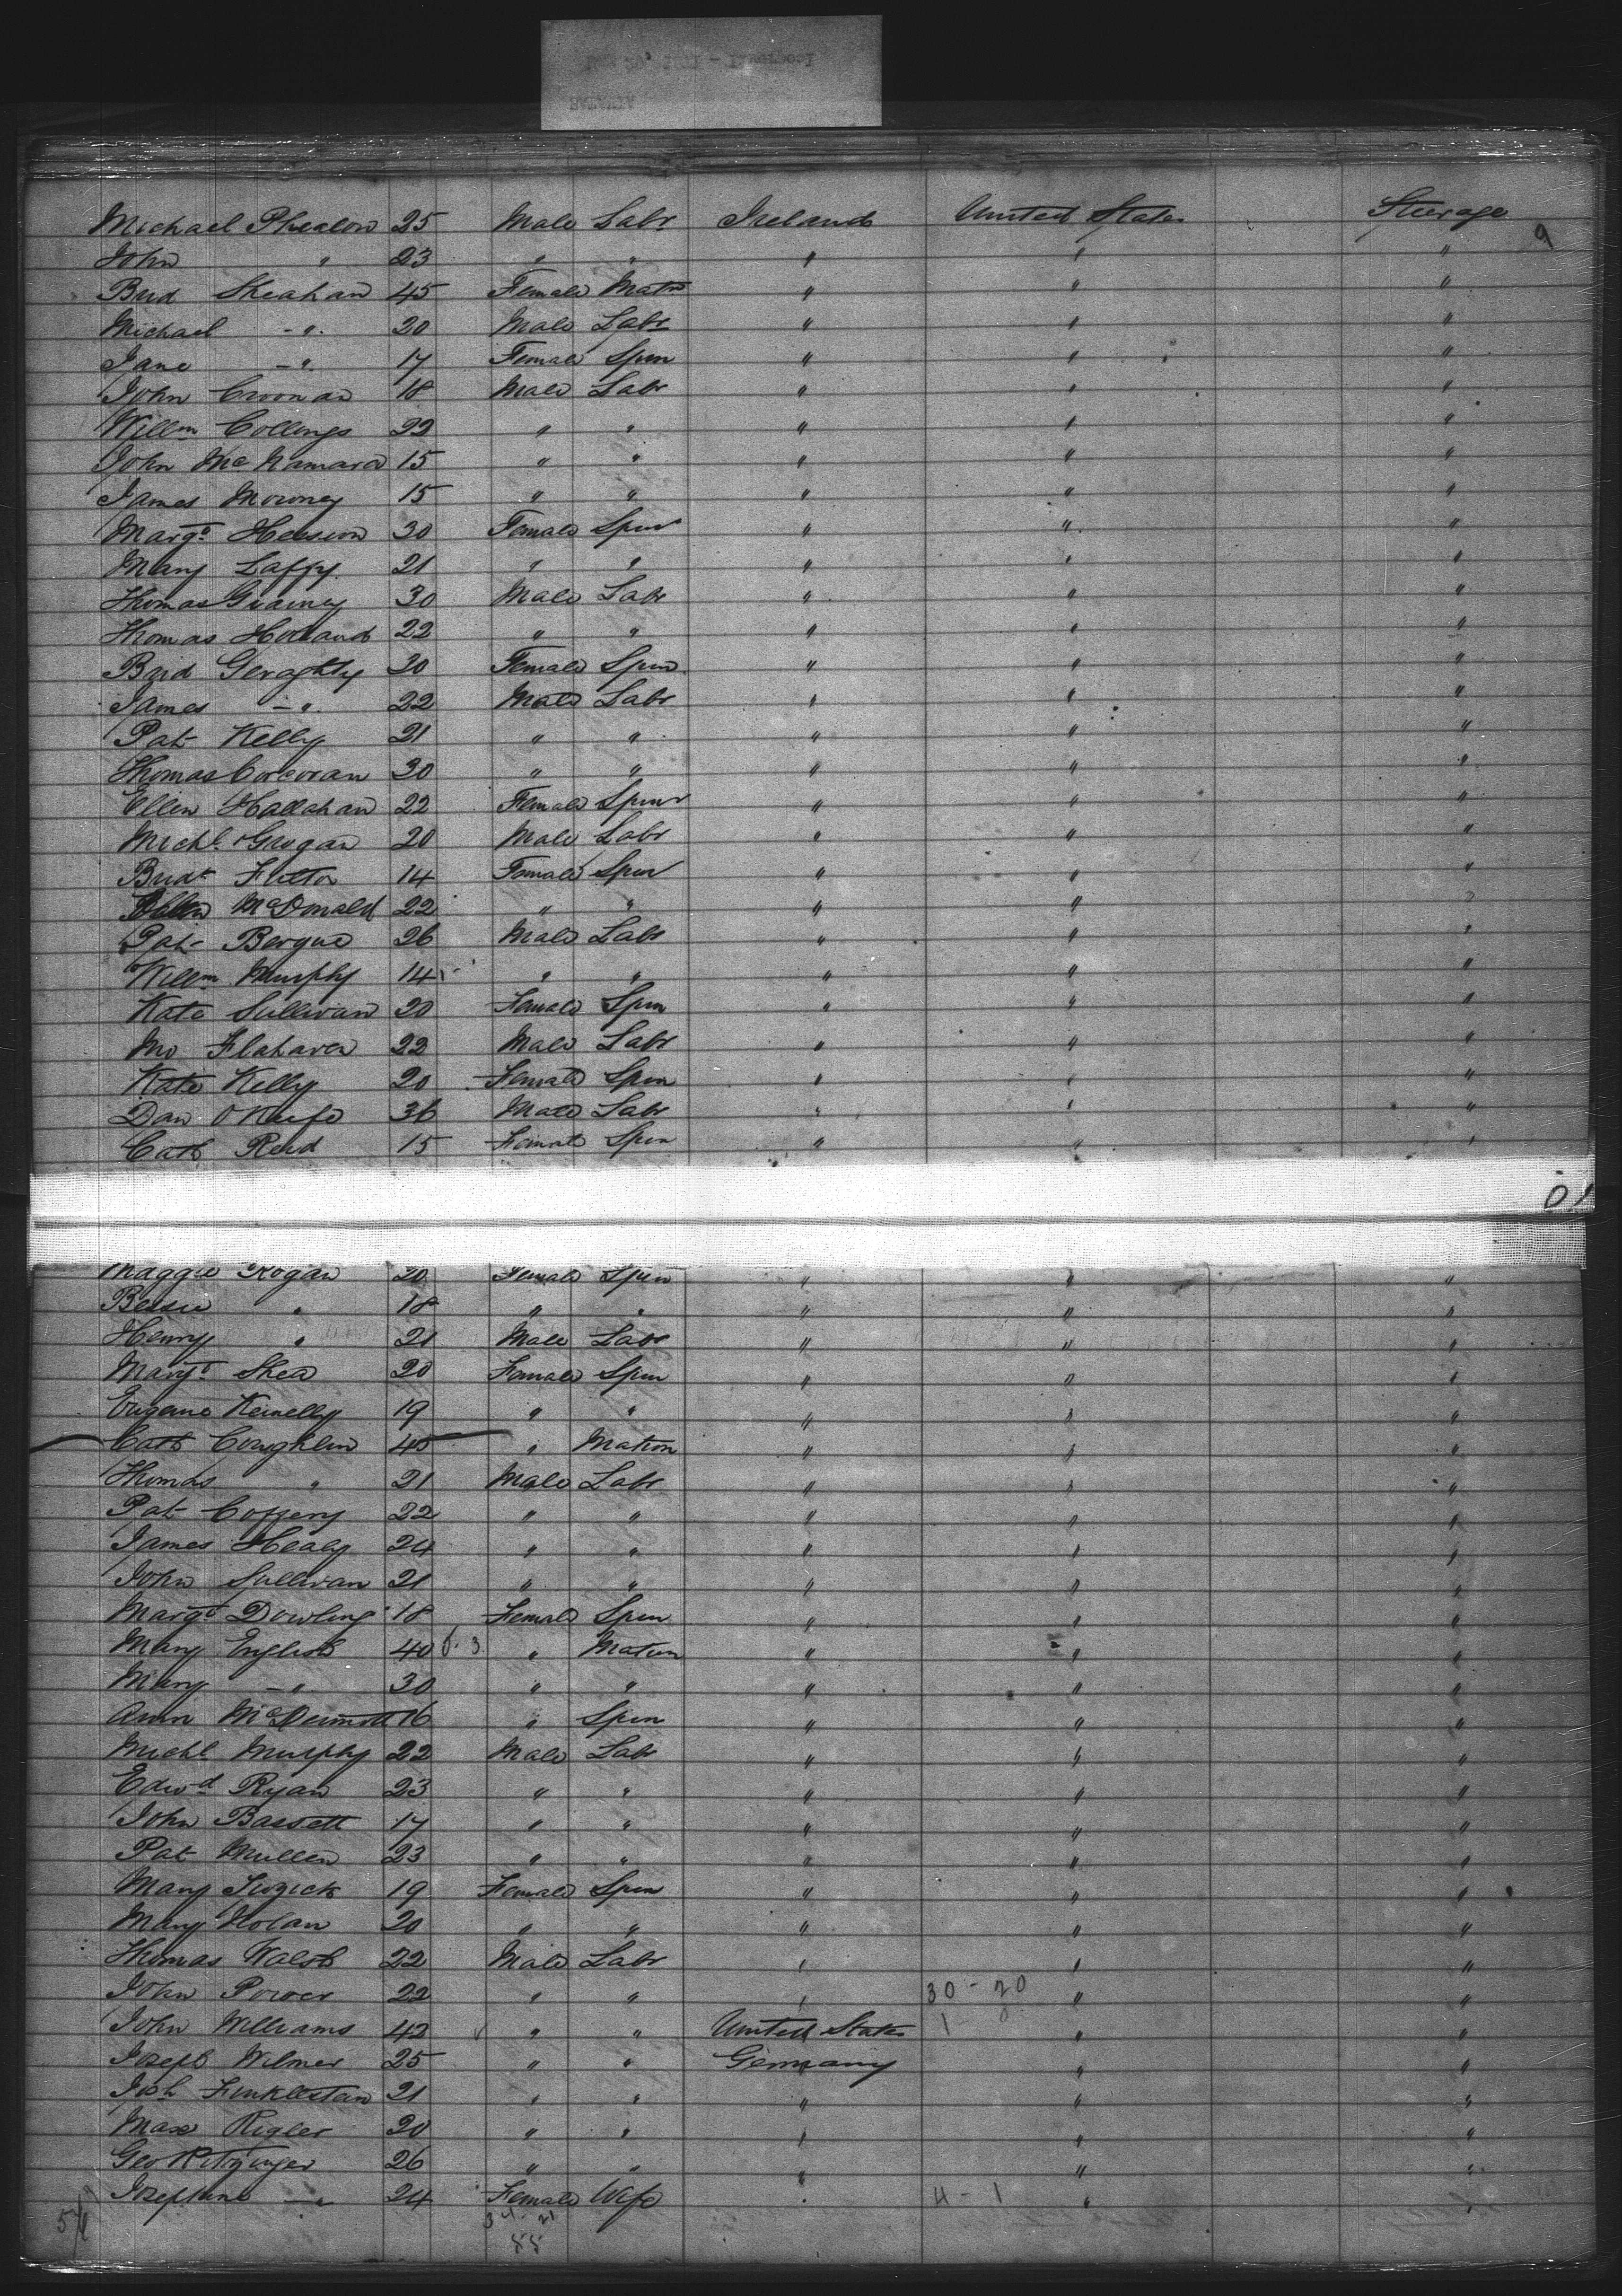 Michael Phealon 25 Male Labr Ireland United States Steerage
9
John " 23 " " " " "
Brid Sheahan 45 Female Matn " " "
Michael - " 20 Male Labr " " "
Jane - " 17 Female Spin " " "
John Croonan 18 Male Labr " " "
Willm Collings 22 " " " " "
John McNamara 15 " " " " "
James Morney 15 " " " " "
Margt 30 Female Spin " " "
Mary Laffy 21 " " " " "
Thomas Grainey 30 Male Labr " " "
Thomas Holland 22 " " " " "
Brid Geraghty 30 Female Spin " " "
James - " 22 Male Labr " " "
Pat Kelly 21 " " " " "
Thomas Corcoran 30 " " " " "
Ellen Hallahan 22 Female Spin " " "
Michl Grogan 20 Male Labr " " "
Bridt 14 Female Spin " " "
Ellen McDonald 22 " " " " "
Pat Bergue 26 Male Labr " " "
Willm Murphy 14 " " " " "
Kate Sullivan 20 Female Spin " " "
22 Male Labr " " "
Kate Kelly 20 Female Spin " " "
Dan O'Keefe 36 Male Labr " " "
Cath Reid 15 Female Spin " " "
Maggie Hogan 20 Female Spin " " "
Bessie " 18 " " " " "
Henry " 21 Male Labr " " "
Margt Shea 20 Female Spin " " "
Eugene Kennelly 19 " " " " "
Cath Coughlin 45 " Matron " " "
Thomas " 21 Male Labr " " "
Pat Coffery 22 " " " " "
James Healy 24 " " " " "
John Sullivan 21 " " " " "
Margt Dowling 18 Female Spin " " "
Mary English 40 6.3 " Matron " " "
Mary - " 30 " " " " "
Ann McDermott 16 " Spin " " "
Michl Murphy 22 Male Labr " " "
Edwd Ryan 23 " " " " "
John Bassett 17 " " " " "
Pat Mullen 23 " " " " "
Mary 19 Female Spin " " "
Mary Nolan 20 " " " " "
Thomas Walsh 22 Male Labr " " "
John Power 22 " " " 30-20 " "
John Williams 42 " " United States 1 0 " "
Joseph Wilmer 25 " " Germany " "
Josh Finklestein 21 " " " " "
Max Rigler 20 " " " " "
Geo Ritzinger 26 " " " " "
Josephine - " 24 Female Wife " 4-1 " "
34-21
55